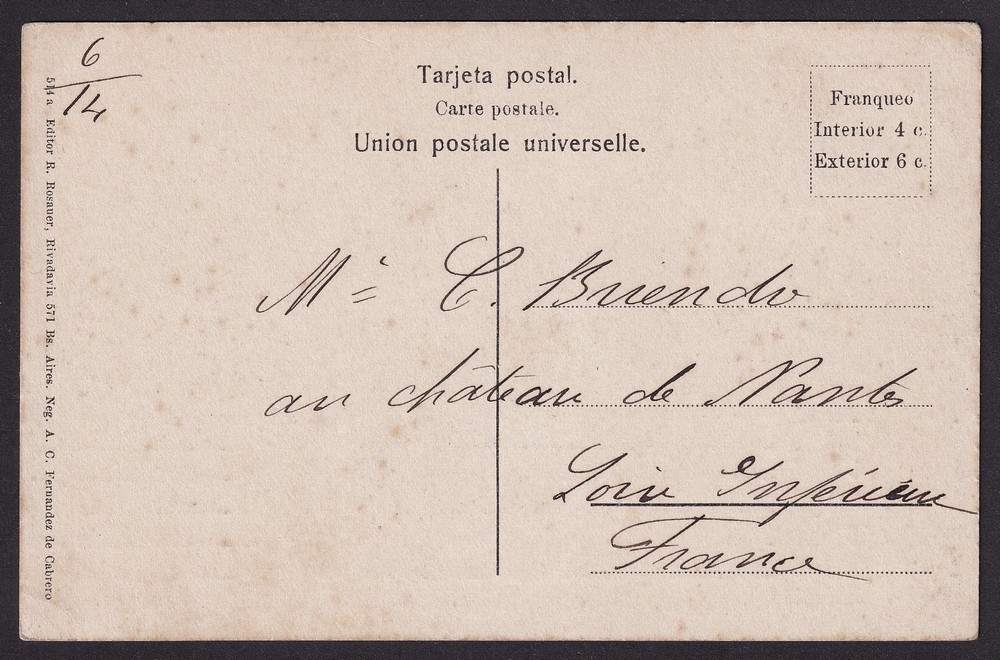 6/14
Tarjeta postal.
Carte postale.
Union postale universelle.
Franqueo
Interior 4 c.
Exterior 6 c.
514a Editor R. Rosauer, Rivadavia 571 Bs. Aires. Neg. A. C. Fernandez de Cabrero
C.
au château de Nantes
Loire Inférieure
France